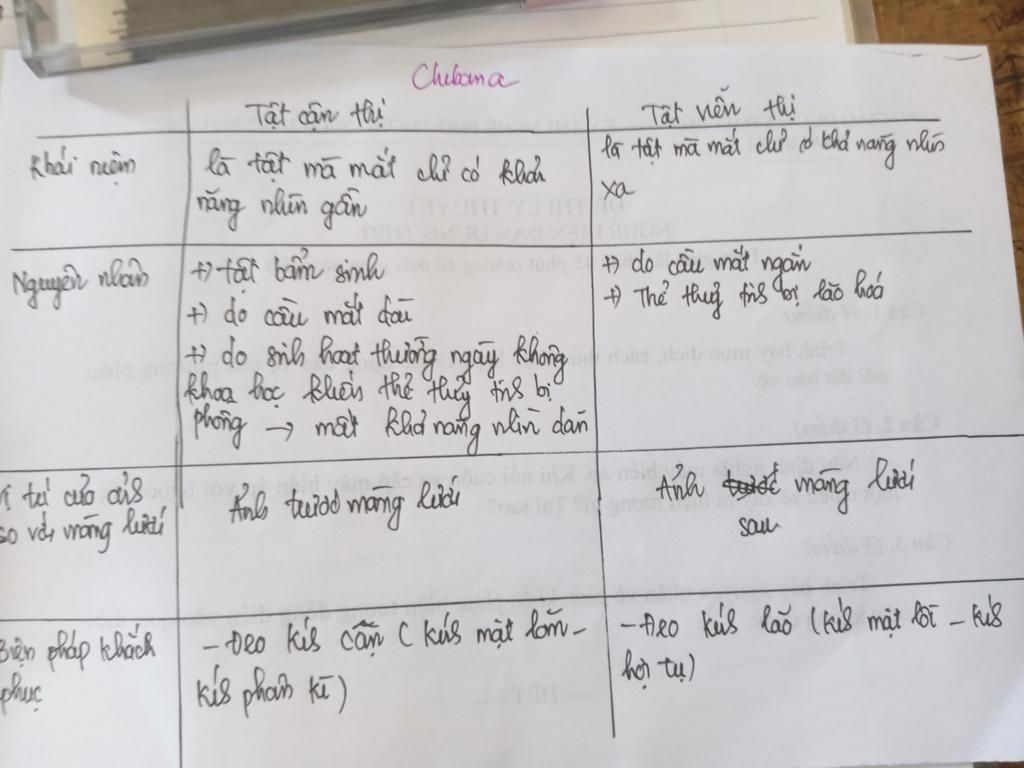 Chibana
Tật cận thị
Tật viễn thị
Khái niệm
là tật mà mắt chỉ có khả
năng nhìn gần
là tật mà mắt chỉ có khả năng nhìn
xa
Nguyên nhân
+) tật bẩm sinh
+) do cầu mắt dài
+) do sinh hoạt thường ngày không
khoa học khiến thể thủy tinh bị
phồng → mất khả năng nhìn dãn
+) do cầu mắt ngắn
+) Thể thuỷ tinh bị lão hoá
Vị trí của ảnh
so với màng lưới
Ảnh trước màng lưới
Ảnh trước màng lưới
sau
Biện pháp khắc
phục
- Đeo kính cận (kính mặt lõm -
kính phân kì)
- Đeo kính lão (kính mặt lồi - kính
hội tụ)